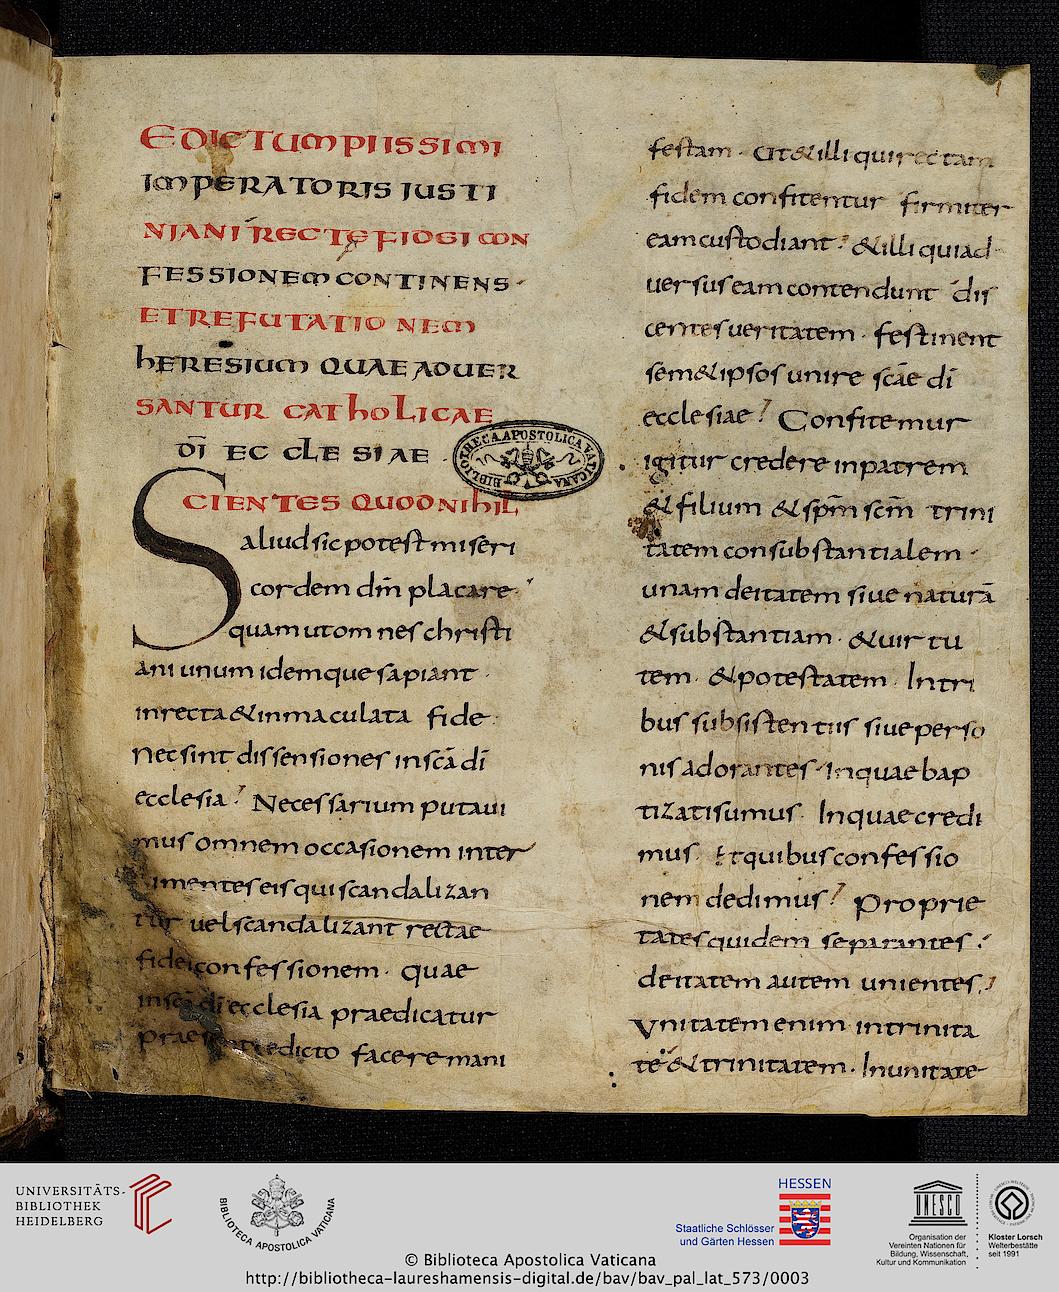 EDICTUM PIISSIMI
IMPERATORIS IUSTI
NIANI RECTE FIDEI CON
FESSIONEM CONTINENS·
ET REFUTATIO NEM
hERESIUM QUAE ADUER
SANTUR CAThoLICAE
DĪ EC CLE SIAE ·
BIBLIOTHECA APOSTOLICA VATICANA
SCIENTES QUOD NIhIL
aliud sic potest miseri
cordem dm̄ placare·
quam ut omnes christi
ani unum idemque sapiant ·
in recta & inmaculata fide·
Nec sint dissensiones in scā dī
ecclesia? Necessarium putaui
mus omnem occasionem inter
imentes eis qui scandalizan
tur uel scandalizant rectae
fidei confessionem· quae
in scā dī ecclesia praedicatur
edicto facere mani
festam· Ut & illi qui rectam
fidem confitentur firmiter
eam custodiant? & illi qui ad
uersus eam contendunt dis
centes ueritatem· festinent
sem & ipsos unire scāe dī
ecclesiae? Confitemur
igitur credere in patrem
& filium & spm̄ scm̄ trini
tatem consubstantialem·
unam deitatem siue naturā
& substantiam· & uirtu
tem· & potestatem· In tri
bus subsistentiis siue perso
nis adorantes· In quae bap
tizati sumus· In quae credi
mus· Et quibus confessio
nem dedimus? Proprie
tates quidem separantes·
deitatem autem unientes·
Vnitatem enim in trinita
te & trinitatem· In unitate
UNIVERSITÄTS-
BIBLIOTHEK
HEIDELBERG
BIBLIOTECA APOSTOLICA VATICANA
HESSEN
Staatliche Schlösser
und Gärten Hessen
UNESCO
Organisation der
Vereinten Nationen für
Bildung, Wissenschaft,
Kultur und Kommunikation
Kloster Lorsch
Welterbestätte
seit 1991
© Biblioteca Apostolica Vaticana
http://bibliotheca-laureshamensis-digital.de/bav/bav_pal_lat_573/0003